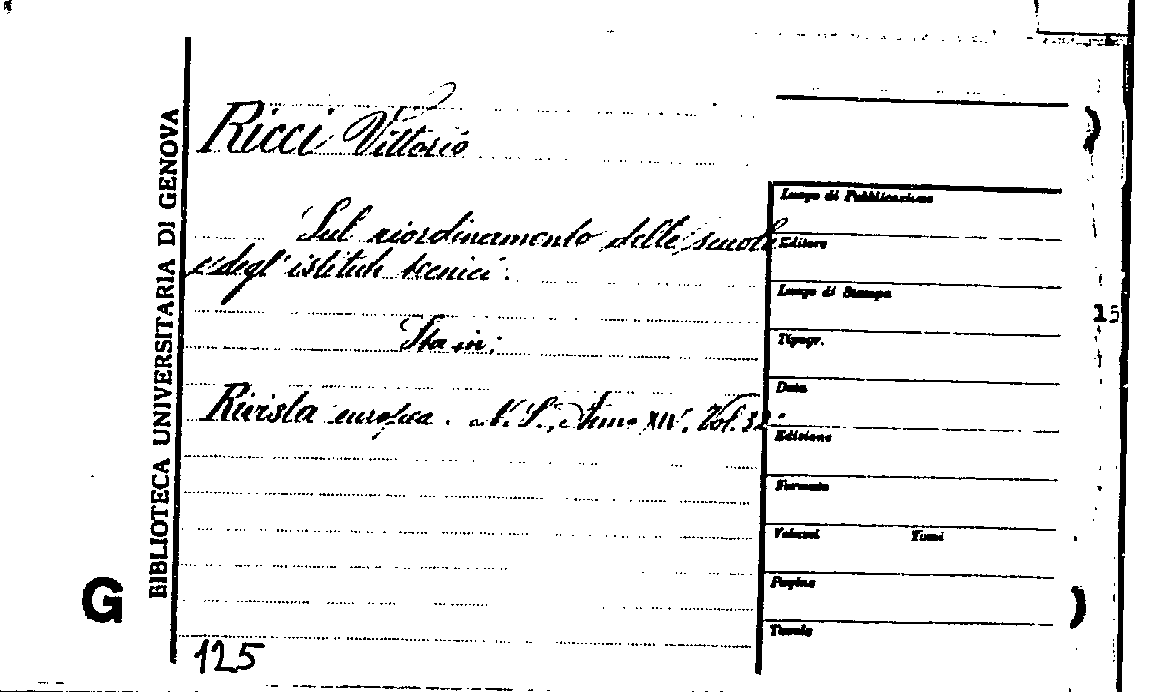 BIBLIOTECA UNIVERSITARIA DI GENOVA
G
Ricci Vittorio
Sul riordinamento delle scuole
e degl' istituti tecnici.
Sta in:
Rivista europea. N. S., Anno XIV, Vol. 32°
125
Luogo di Pubblicazione
Editore
Luogo di Stampa
Tipogr.
Data
Edizione
Formato
Volumi Tomi
Pagine
Tavole
15